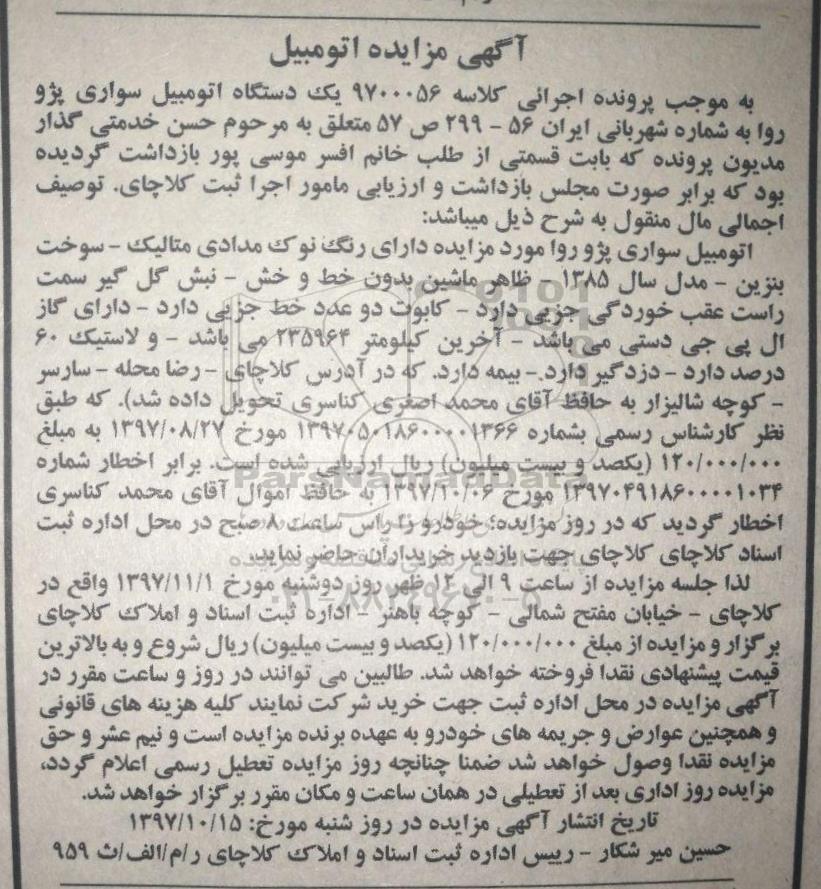 آگهی مزایده اتومبیل
به موجب پرونده اجرائی کلاسه ۹۷۰۰۰۵۶ یک دستگاه اتومبیل سواری پژو
روا به شماره شهربانی ایران ۵۶ - ۲۹۹ ص ۵۷ متعلق به مرحوم حسن خدمتی گذار
مدیون پرونده که بابت قسمتی از طلب خانم افسر موسی پور بازداشت گردیده
بود که برابر صورت مجلس بازداشت و ارزیابی مامور اجرا ثبت کلاچای. توصیف
اجمالی مال منقول به شرح ذیل میباشد:
اتومبیل سواری پژو روا مورد مزایده دارای رنگ نوک مدادی متالیک - سوخت
بنزین - مدل سال ۱۳۸۵ - ظاهر ماشین بدون خط و خش - نبش گل گیر سمت
راست عقب خوردگی جزیی دارد - کاپوت دو عدد خط جزیی دارد - دارای گاز
ال پی جی دستی می باشد - آخرین کیلومتر ۲۳۵۹۶۴ می باشد - و لاستیک ۶۰
درصد دارد - دزدگیر دارد. - بیمه دارد. که در آدرس کلاچای - رضا محله - سارسر
- کوچه شالیزار به حافظ آقای محمد اصغری کناسری تحویل داده شد). که طبق
نظر کارشناس رسمی بشماره ۱۳۹۷۰۵۰۱۸۶۰۰۰۰۱۳۶۶ مورخ ۱۳۹۷/۰۸/۲۷ به مبلغ
۱۲۰/۰۰۰/۰۰۰ (یکصد و بیست میلیون) ریال ارزیابی شده است. برابر اخطار شماره
۱۳۹۷۰۴۹۱۸۶۰۰۰۰۱۰۳۴ مورخ ۱۳۹۷/۱۰/۰۶ به حافظ اموال آقای محمد کناسری
اخطار گردید که در روز مزایده؛ خودرو را راس ساعت ۸ صبح در محل اداره ثبت
اسناد کلاچای کلاچای جهت بازدید خریداران حاضر نماید.
لذا جلسه مزایده از ساعت ۹ الی ۱۲ ظهر روز دوشنبه مورخ ۱۳۹۷/۱۱/۱ واقع در
کلاچای - خیابان مفتح شمالی - کوچه باهنر - اداره ثبت اسناد و املاک کلاچای
برگزار و مزایده از مبلغ ۱۲۰/۰۰۰/۰۰۰ (یکصد و بیست میلیون) ریال شروع و به بالاترین
قیمت پیشنهادی نقدا فروخته خواهد شد. طالبین می توانند در روز و ساعت مقرر در
آگهی مزایده در محل اداره ثبت جهت خرید شرکت نمایند کلیه هزینه های قانونی
و همچنین عوارض و جریمه های خودرو به عهده برنده مزایده است و نیم عشر و حق
مزایده نقدا وصول خواهد شد ضمنا چنانچه روز مزایده تعطیل رسمی اعلام گردد،
مزایده روز اداری بعد از تعطیلی در همان ساعت و مکان مقرر برگزار خواهد شد.
تاریخ انتشار آگهی مزایده در روز شنبه مورخ: ۱۳۹۷/۱۰/۱۵
حسین میر شکار - رییس اداره ثبت اسناد و املاک کلاچای ر/م/الف/ث ۹۵۹
ParsNamadData